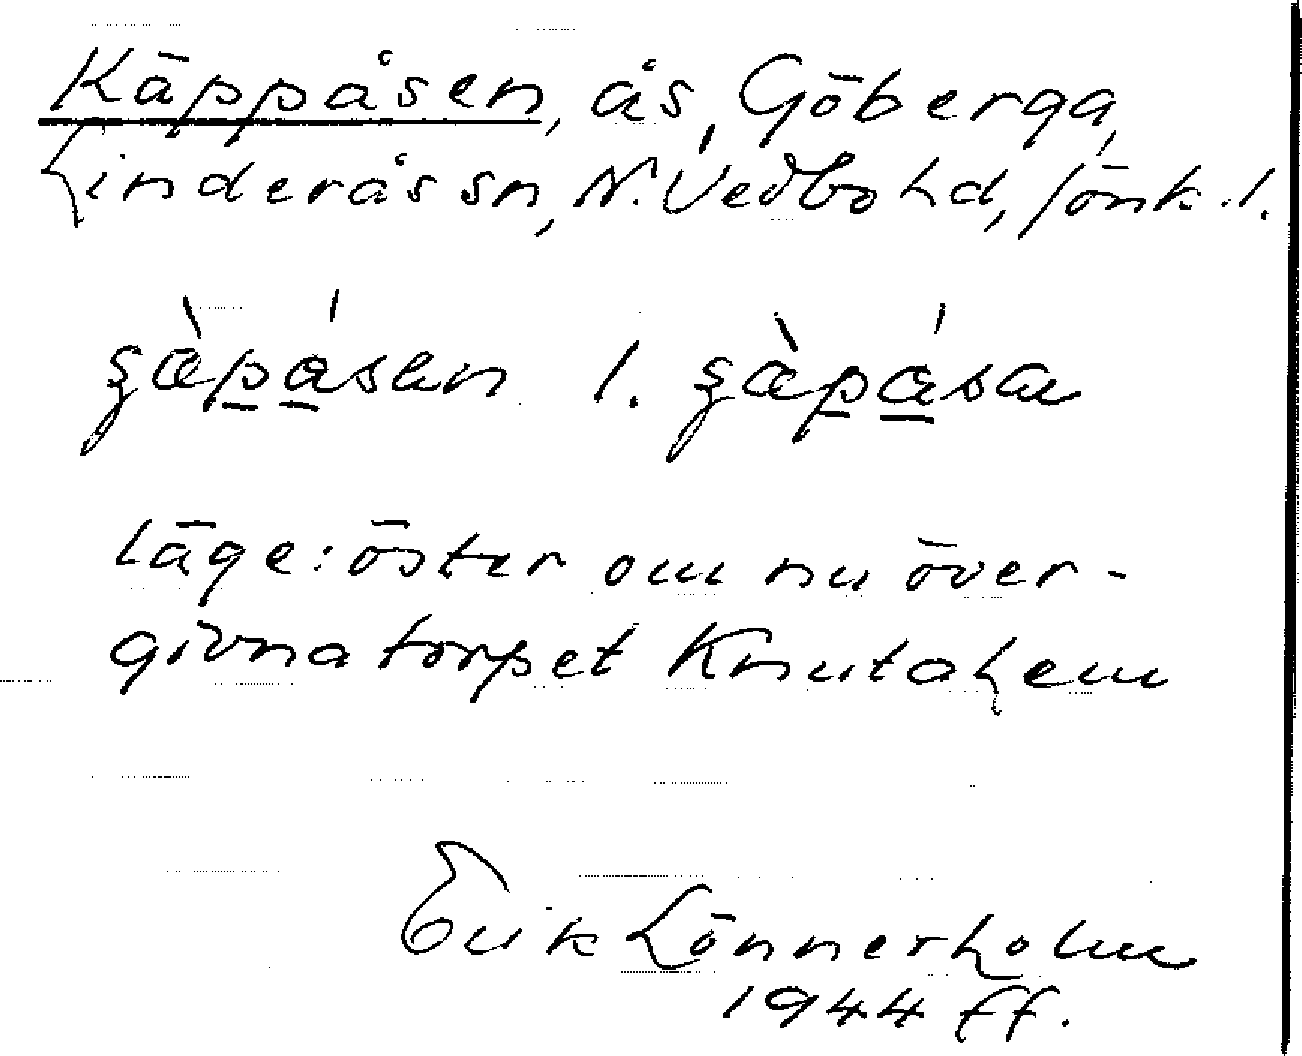 Käppåsen, ås, Göberga,
Linderås sn, N. Vedbo hd, Jönk. l.
l.
läge: öster om nu över-
givna torpet Knutahem
Erik Lönnerholm
1944 ff.